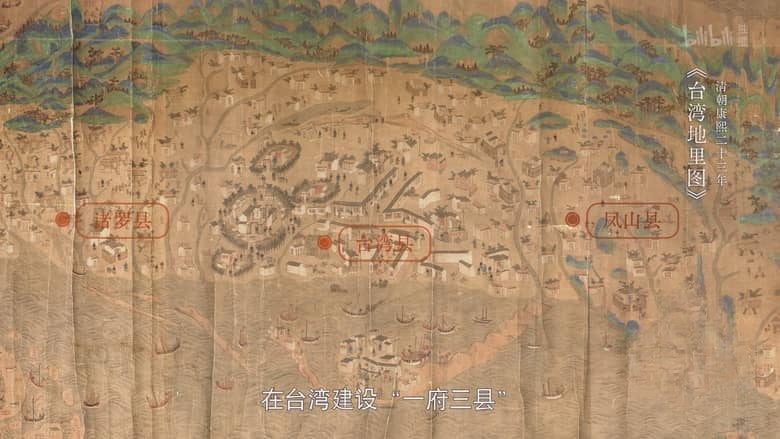 bilibili
清朝康熙二十三年
《台湾地里图》
诸罗县
台湾县
凤山县
在台湾建设“一府三县”